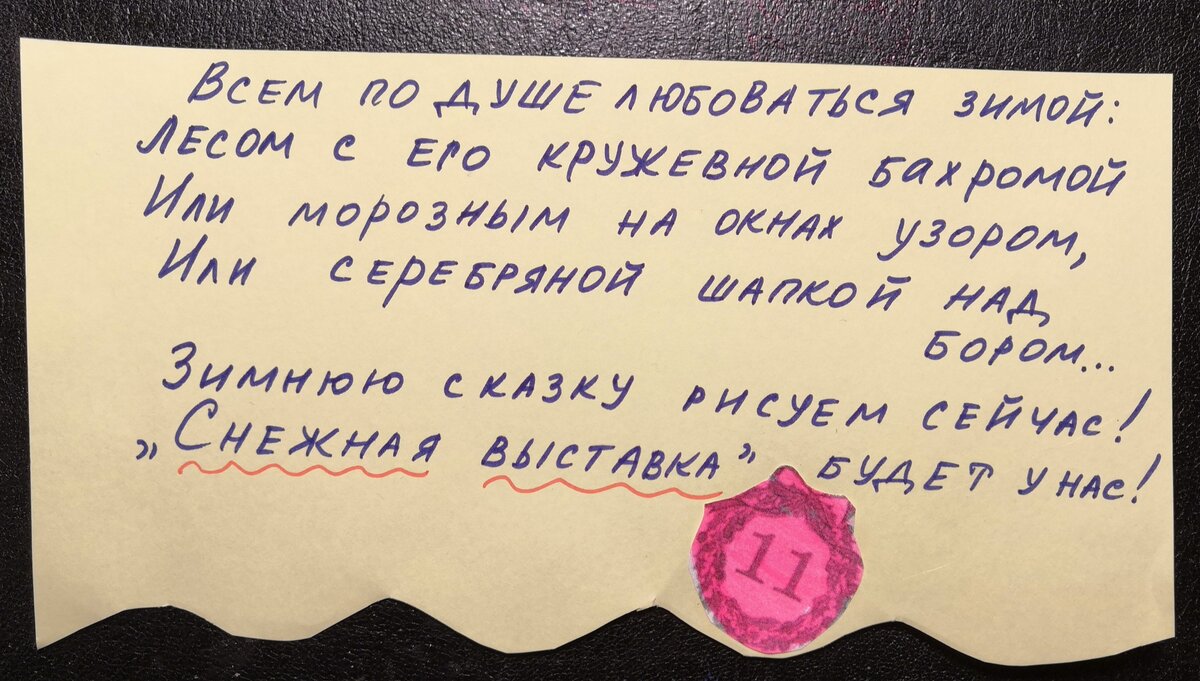 Всем по душе любоваться зимой:
Лесом с его кружевной бахромой
Или морозным на окнах узором,
Или серебряной шапкой над
бором...
Зимнюю сказку рисуем сейчас!
„Снежная выставка” будет у нас!
11